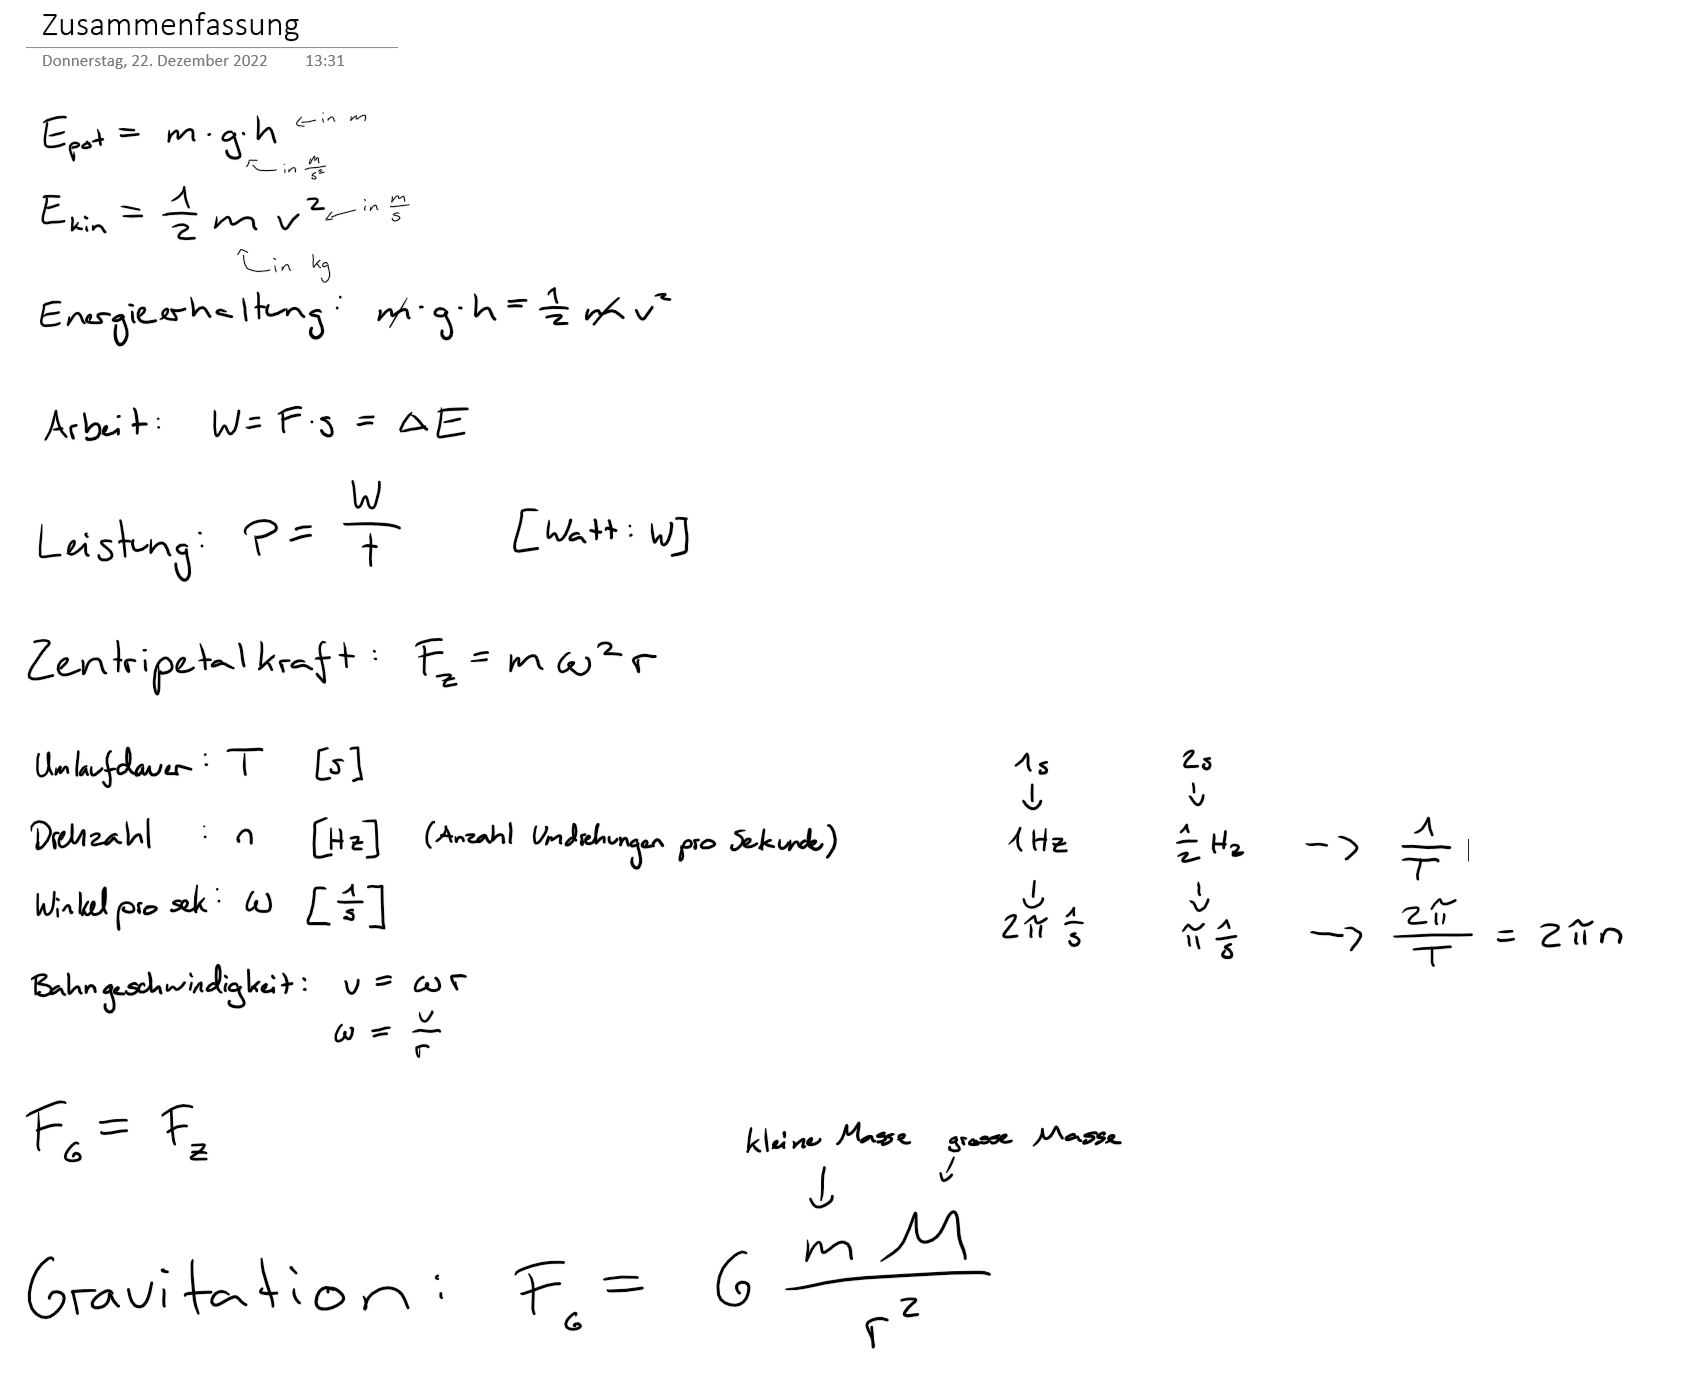 Zusammenfassung
Donnerstag, 22. Dezember 2022 13:31
E_pot = m · g · h ← in m
in m/s²
E_kin = 1/2 m v² ← in m/s
in kg
Energieerhaltung: m · g · h = 1/2 m v²
Arbeit: W = F · s = ΔE
Leistung: P = W/t [Watt: W]
Zentripetalkraft: F_z = m ω² r
Umlaufdauer: T [s]
Drehzahl : n [Hz] (Anzahl Umdrehungen pro Sekunde)
Winkel pro sek: ω [1/s]
Bahngeschwindigkeit: v = ω r
ω = v/r
1s 2s
↓ ↓
1 Hz 1/2 Hz -> 1/T
↓ ↓
2π 1/s π 1/s -> 2π/T = 2πn
F_G = F_z
kleine Masse grosse Masse
↓ ↓
Gravitation: F_G = G m M / r²